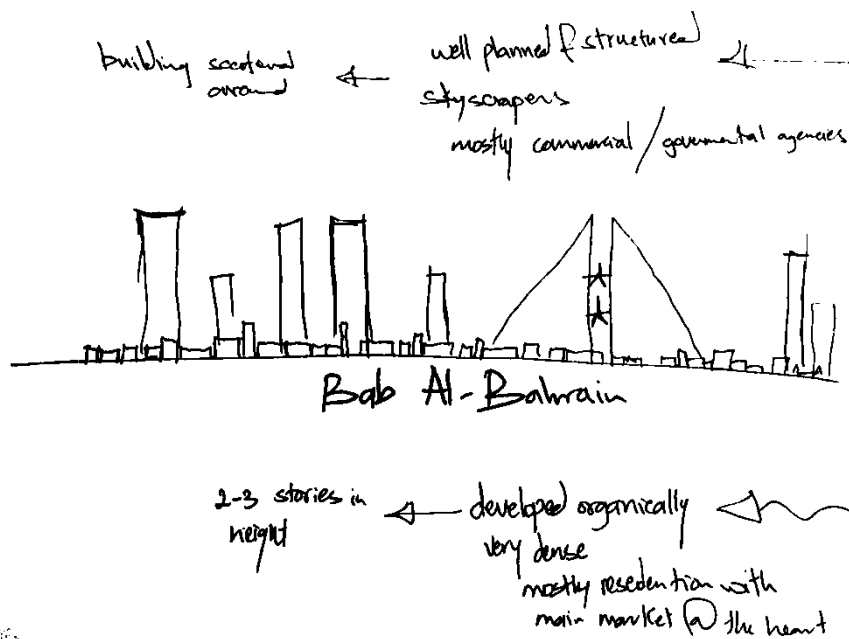 building scatterd
around
well planned & structured
skyscrapers
mostly commercial / govermental agencies
Bab Al-Bahrain
2-3 stories in
height
developed organically
very dense
mostly resedention with
main market @ the heart